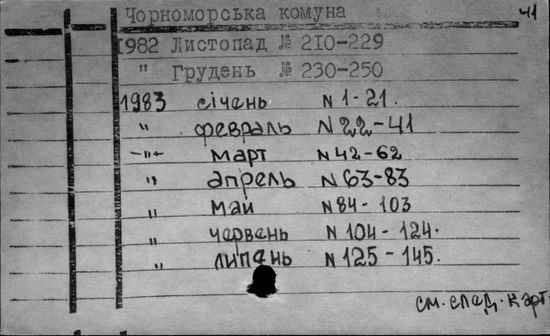 41
Чорноморська комуна
1982 Листопад № 210-229
" Грудень № 230-250
1983 січень N 1-21.
" февраль N 22-41
-"- март N 42-62
" апрель N 63-83
" май N 84-103
" червень N 104-124.
" липень N 125-145.
см. след. карт